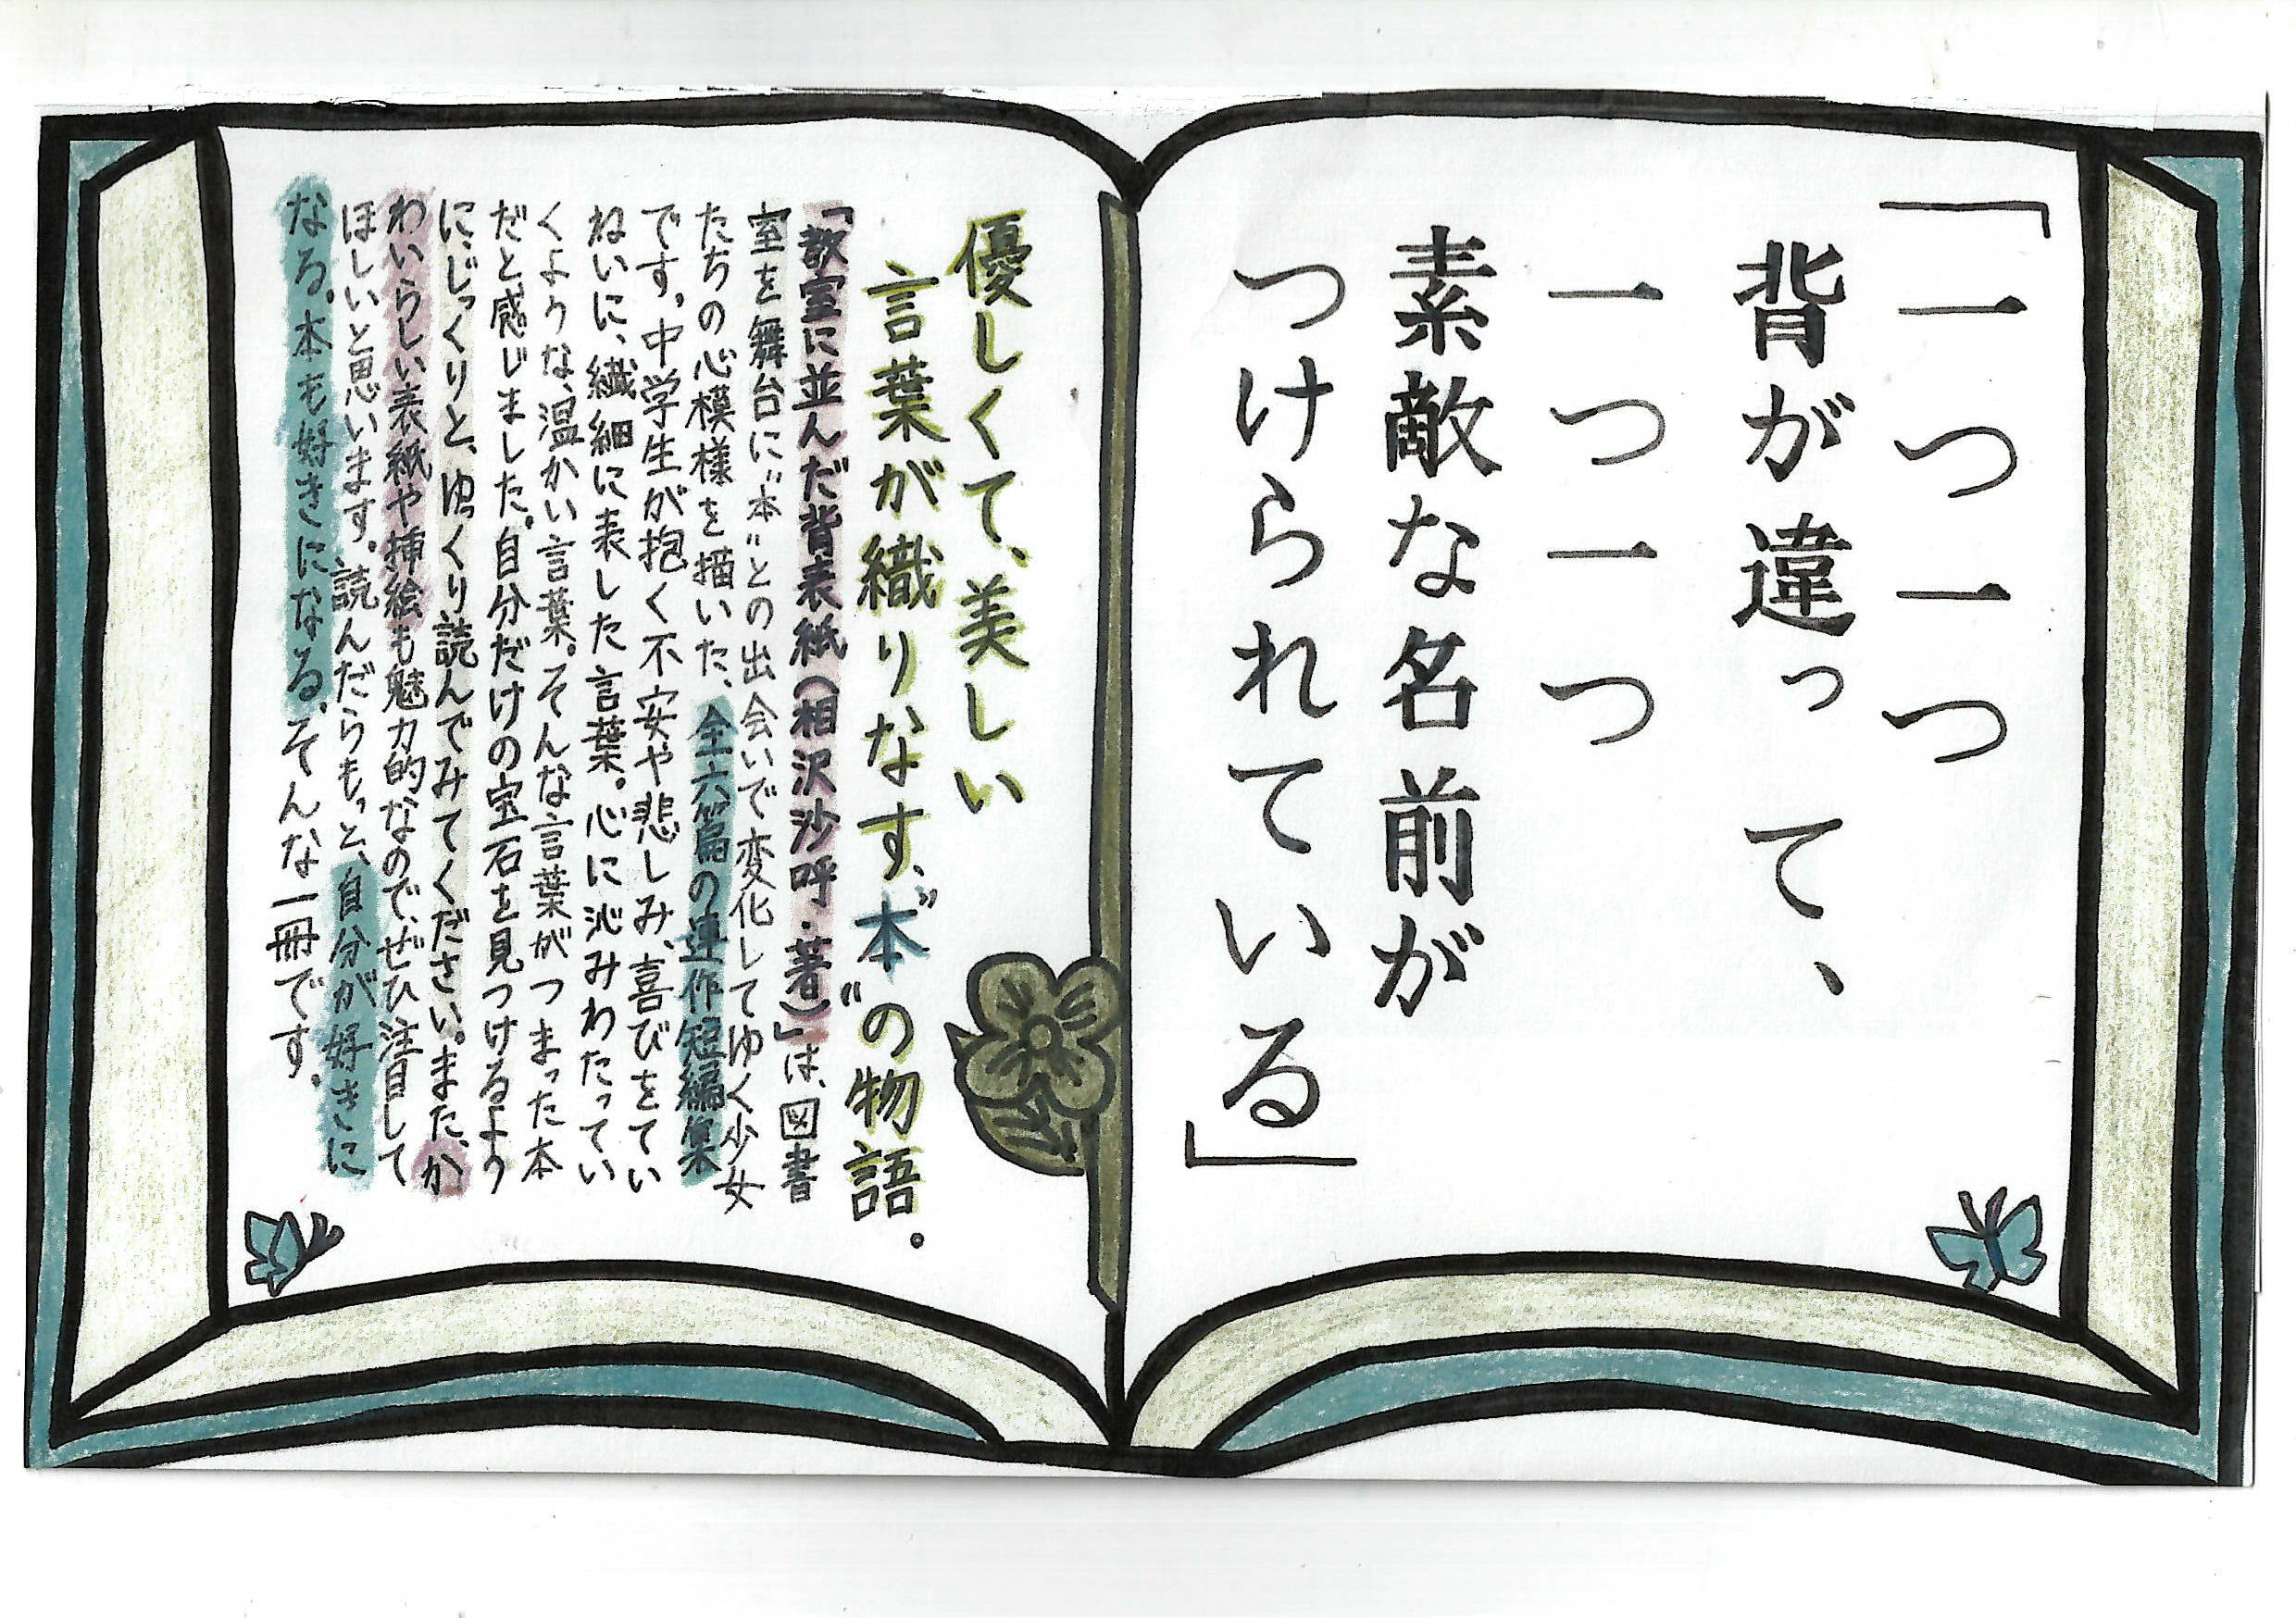 「一つ一つ
背が違って、
一つ一つ
素敵な名前が
つけられている」
優しくて、美しい
言葉が織りなす、〝本〟の物語。
「教室に並んだ背表紙(相沢沙呼・著)」は、図書
室を舞台に〝本〟との出会いで変化してゆく少女
たちの心模様を描いた、全六篇の連作短編集
です。中学生が抱く不安や悲しみ、喜びをてい
ねいに、繊細に表した言葉。心に沁みわたってい
くような、温かい言葉。そんな言葉がつまった本
だと感じました。自分だけの宝石を見つけるよう
に、じっくりと、ゆっくり読んでみてください。また、か
わいらしい表紙や挿絵も魅力的なので、ぜひ注目して
ほしいと思います。読んだらもっと、自分が好きに
なる。本も好きになる。そんな一冊です。